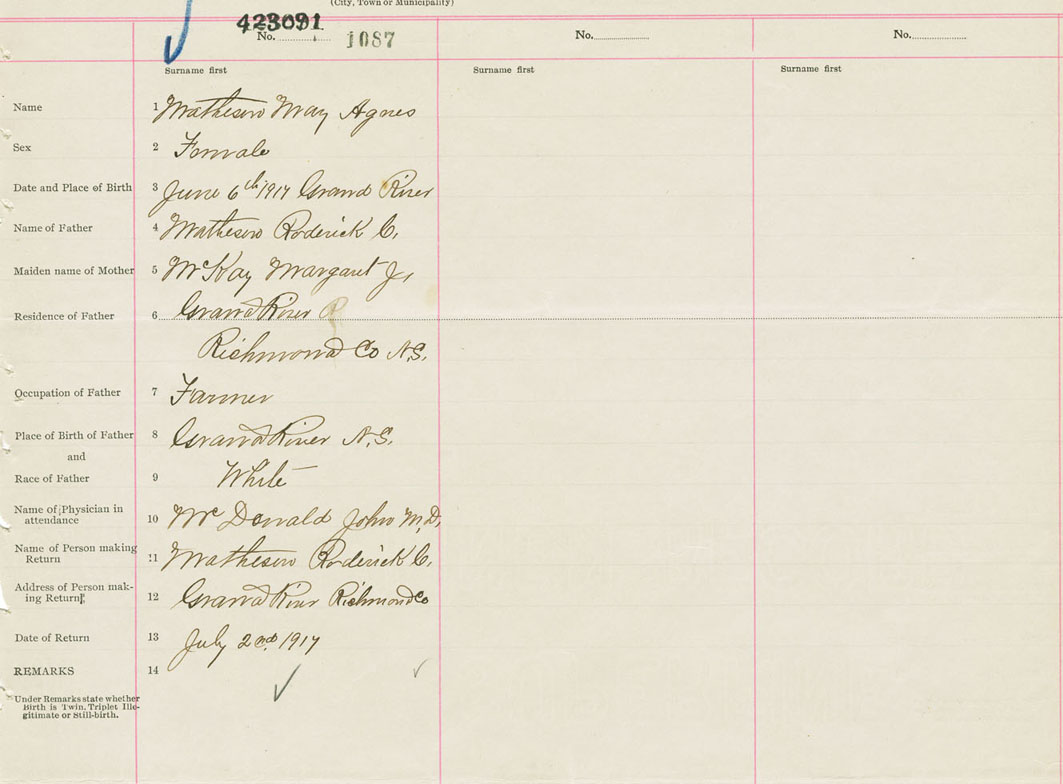 (City, Town or Municipality)
423091
No. 1087
No.
No.
Surname first
Surname first
Surname first
Name 1 Matheson May Agnes
Sex 2 Female
Date and Place of Birth 3 June 6th 1917 Grand River
Name of Father 4 Matheson Roderick C.
Maiden name of Mother 5 McKay Margaret J.
Residence of Father 6 Grand River R
Richmond Co N.S.
Occupation of Father 7 Farmer
Place of Birth of Father 8 Grand River N.S.
and
Race of Father 9 White
Name of Physician in
attendance 10 Mc Donald John M.D.
Name of Person making
Return 11 Matheson Roderick C.
Address of Person mak-
ing Return 12 Grand River Richmond Co
Date of Return 13 July 2nd 1917
REMARKS 14
Under Remarks state whether
Birth is Twin, Triplet Ille-
gitimate or Still-birth.